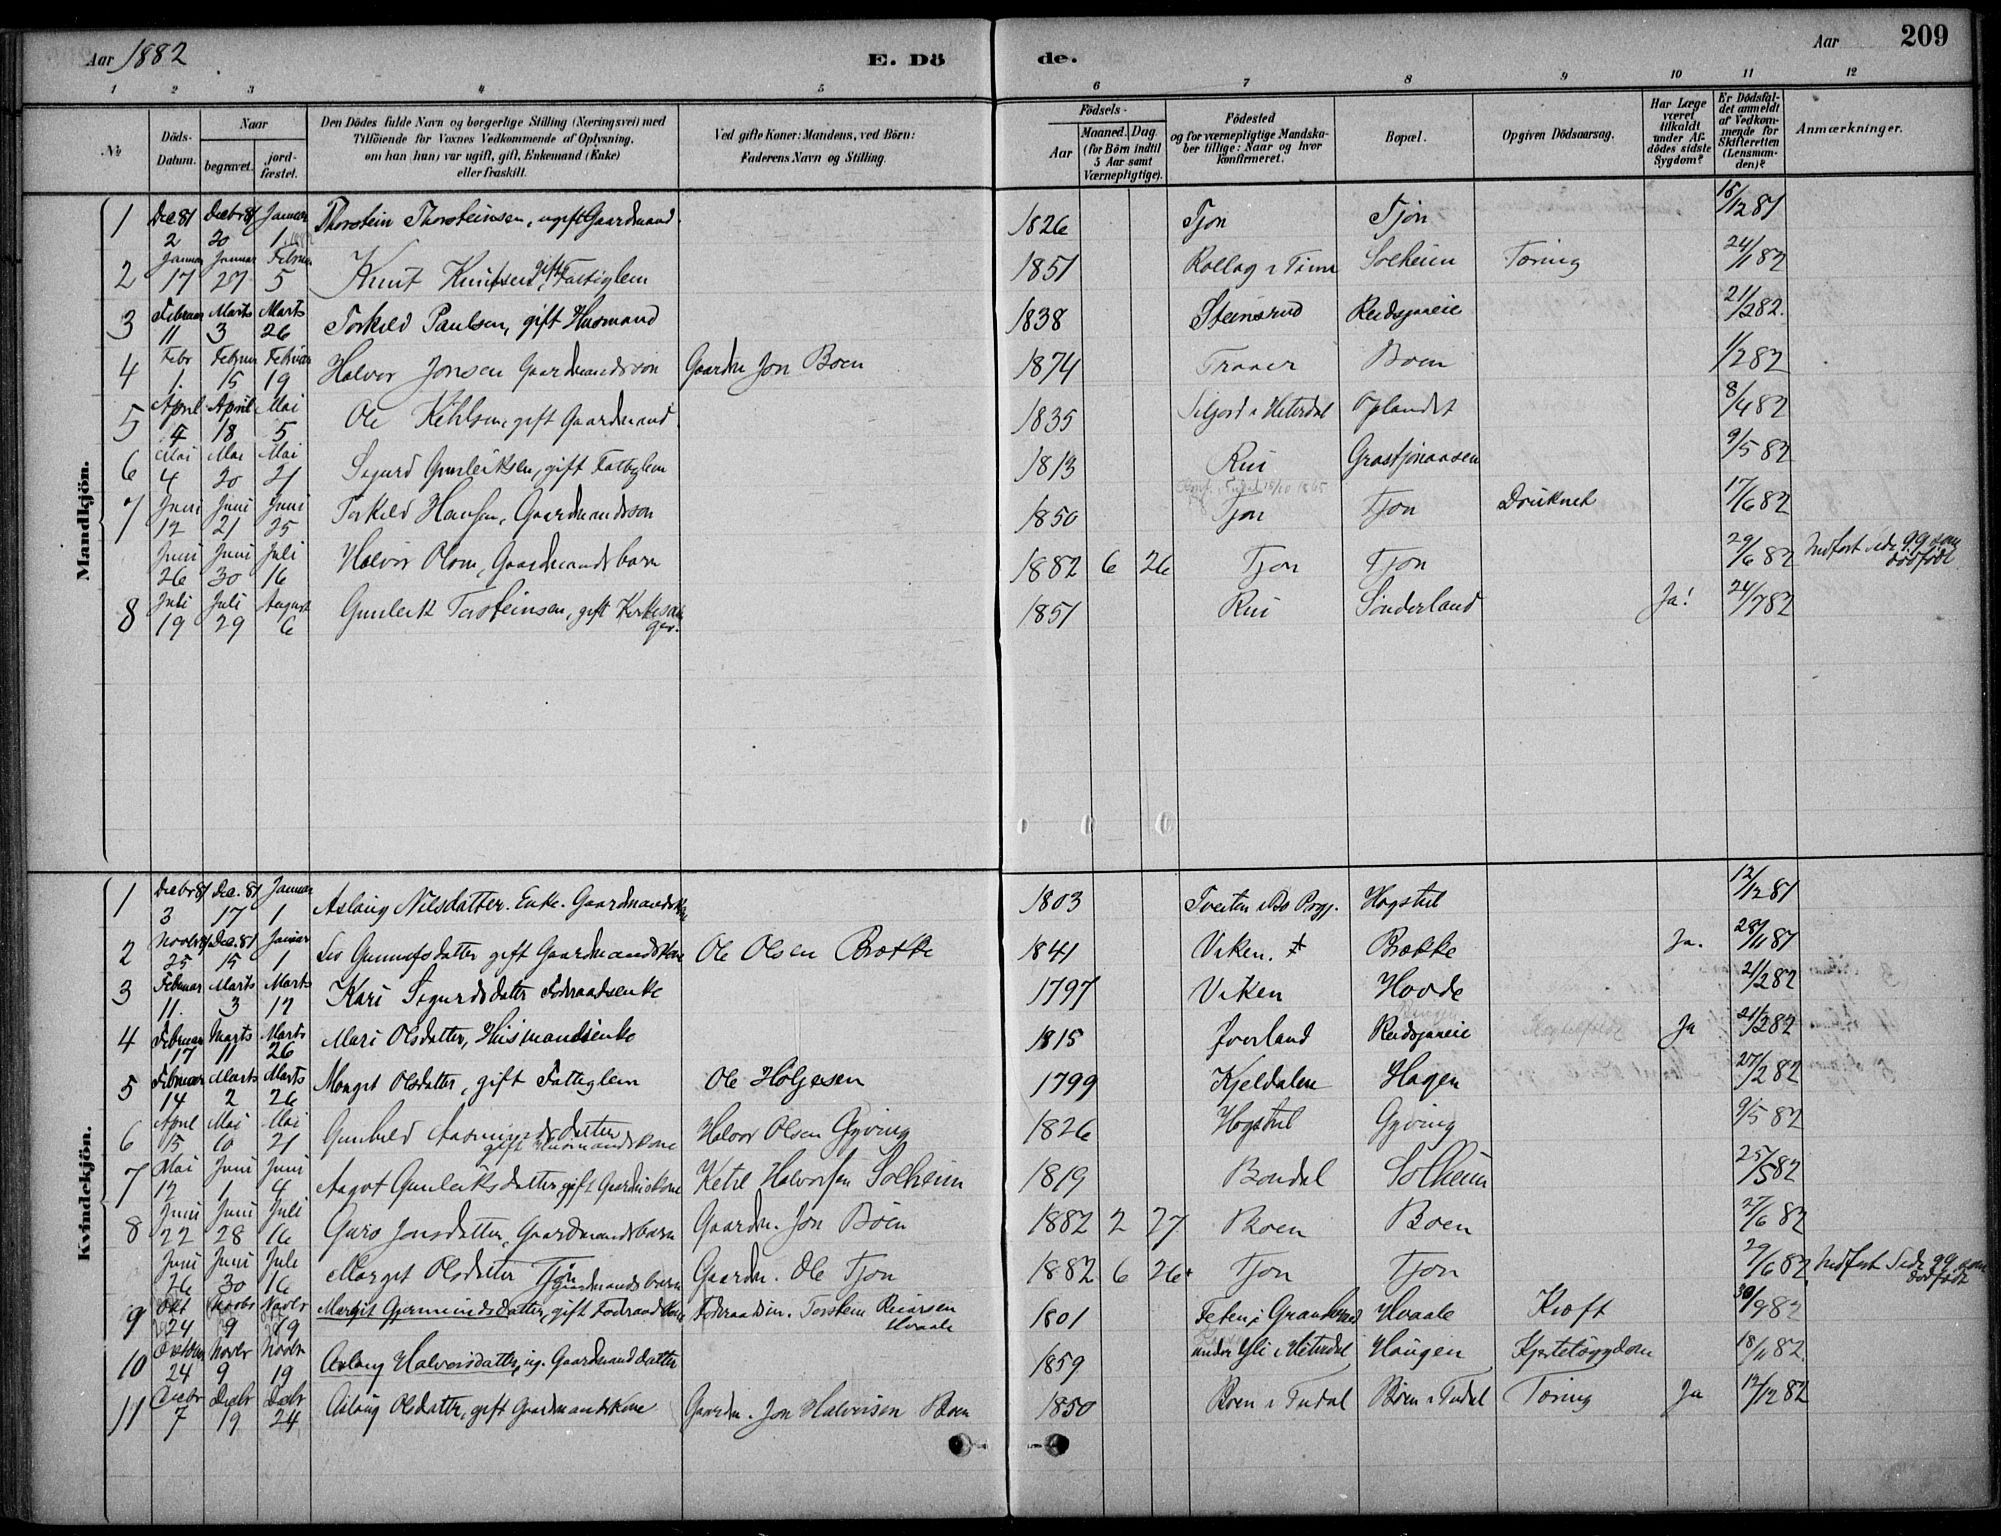 Aar 1882
E. Dö
de.
Aar
209
1 2 3 4 5 6 7 8 9 10 11 12
№
Döds-Datum.
Naar
begravet.
jord-fæstet.
Den Dödes fulde Navn og borgerlige Stilling (Næringsvei) med
Tilföiende for Voxnes Vedkommende af Oplysning,
om han (hun) var ugift, gift, Enkemand (Enke)
eller fraskilt.
Ved gifte Koner: Mandens, ved Börn:
Faderens Navn og Stilling.
Födsels-
Aar
Maaned. Dag.
(for Börn indtil
5 Aar samt
Værnepligtige).
Födested
og for værnepligtige Mandska-
ber tillige: Naar og hvor
konfirmeret.
Bopæl.
Opgiven Dödsaarsag.
Har Læge
været
tilkaldt
under Af-
dödes sidste
Sygdom?
Er Dödsfal-
det anmeldt
af Vedkom-
mende for
Skifteretten
(Lensman-
den)?
Anmærkninger.
Mandkjön.
1 Dec 81 2 Decbr 81 20 Januar 1 Thorstein Thorsteinsen, ugift Gaardmand. 1826 Tjon Tjön 15/12 81
2 Januar 17 Januar 27 Februar 5 Knut Knutsen, gift Fattiglem 1851 Rollag i Tinn Solheim Tæring 24/1 82
3 Februar 11 Marts 3 Marts 26 Torkild Paulsen, gift Husmand 1838 Steinsrud Reidsjaaeie 21/2 82.
4 Febr 1. Februar 15 Februar 19 Halvor Jonsen Gaardmandssön Gaardm Jon Boen 1874 Traaer Boen 1/2 82
5 April 4 April 18 Mai 5 Ole Kittilsen, gift Gaardmand 1835 Seljord i Hiterdal Oplandet 8/4 82
6 Mai 4 Mai 20 Mai 21 Sigurd Gunleiksen, gift Fattiglem 1813 Rui Grastjönaasen 9/5 82
7 Juni 12 Juni 21 Juni 25 Torkild Hansen, Gaardmandsson 1850 Tjon Tjon Druknet 17/6 82
Juni 26 Juni 30 Juli 16 Halvor Olsen, Gaardmandsbarn 1882 6 26 Tjon Tjon 29/6 82 Indfört Side 99 som dödfödt
8 Juli 19 Juli 29 August 6 Gunleik Torsteinsen, gift Kirkesanger. 1851 Rui Sönderland Ja! 24/7 82
Kvindekjön.
1 Decbr 81 3 Dec. 81 17 Januar 1 Aslaug Nilsdatter. Enke. Gaardmandskone 1803 Tveiten i Bö Prgj. Hogstul 12/12 81
2 Novbr 81 25 Dec. 81 15 Januar 1 Liv Gunnufsdatter gift Gaardmandskone Ole Olsen Brække 1841 Viken. Brække Ja. 28/11 81
3 Februar 11. Marts 3 Marts 12 Kari Sigurdsdatter Föderaadsenke 1797 Viken Hovde 21/2 82
4 Februar 17 Marts 11 Marts 26 Mari Olsdatter, Husmandsenke 1815 Joverland Reidsjaaeie Ja 21/2 82
5 Februar 14 Marts 2 Marts 26 Marget Olsdatter, gift Fattiglem Ole Holjesen 1799 Kjeldalen Hagen 27/2 82
6 April 15 Mai 10 Mai 21 Gunhild Aasmundsdatter gift Husmandskone Halvor Olsen Gyving 1826 Hogstul Gyving 9/5 82
7 Mai 12 Juni 1 Juni 4 Aagot Gunleiksdatter, gift Gaardmskone Ketil Halvorsen Solheim 1819 Bondal Solheim 25/5 82
8 Juni 22 Juni 28 Juli 16 Guro Jonsdatter, Gaardmandsbarn Gaardm. Jon Boen 1882 2 27. Boen Boen 27/6 82
Juni 26 Juni 30 Juli 16 Marget Olsdatter Tjön Gaardmandsbarn Gaardm. Ole Tjon 1882 6 26 Tjon Tjon 29/6 82 Indfört Side 99 som dödfödt
9 Okt 24 Novbr 9 Novbr 19 Margit Gjermundsdatter, gift Föderaadskone Föderaadsm. Torstein Reiarsen Hvaale 1801 Teten i Gransherad Hvaale Kræft 30/9 82
10 Oktober 24 Novbr 9 Novbr 19 Aslaug Halvorsdatter, ug. Gaardmanddatter 1859 under Yli i Hiterdal Haugen Hjertesygdom 18/11 82.
11 Decbr 7 Decbr 19 Decbr 24 Aslaug Olsdatter, gift Gaardmandskone Gaardm. Jon Halvorsen Boen 1850 Boen i Tudal Boen i Tudal Tæring Ja 12/12 82